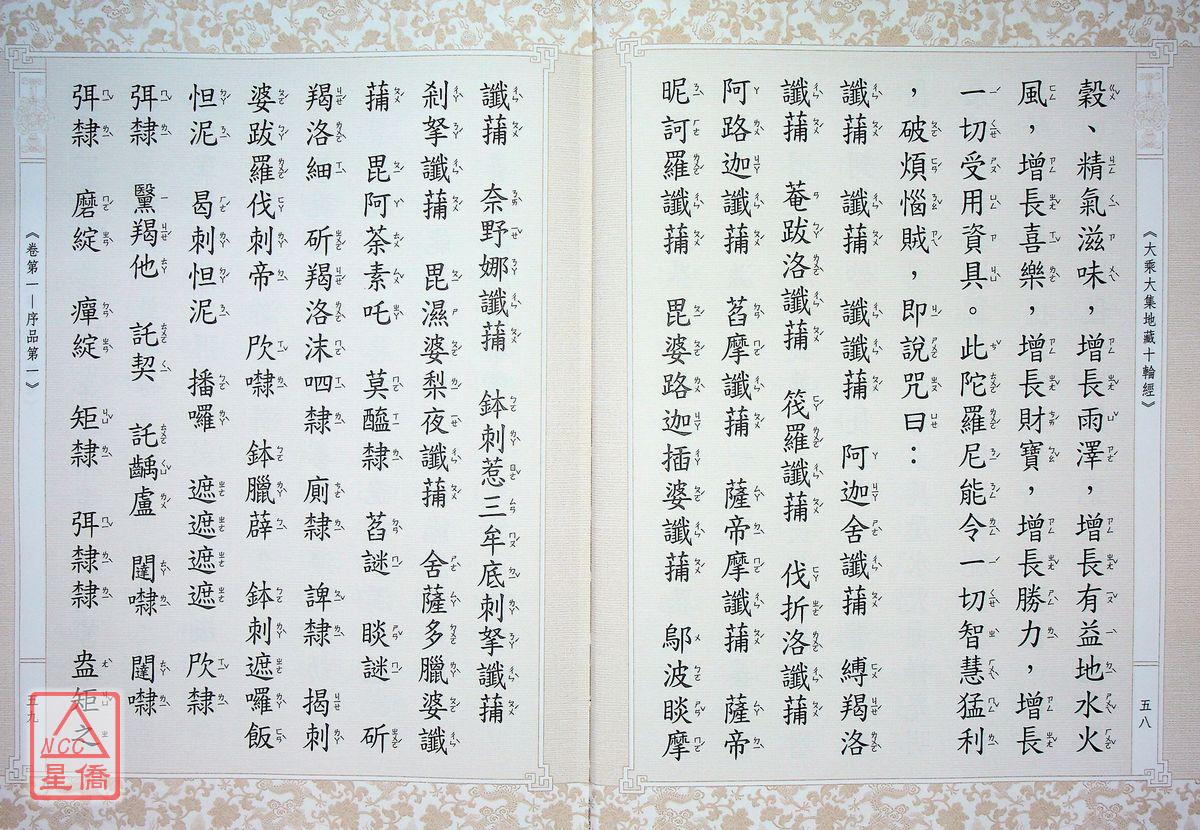 《大乘大集地藏十輪經》
五八
穀、精氣滋味，增長雨澤，增長有益地水火
風，增長喜樂，增長財寶，增長勝力，增長
一切受用資具。此陀羅尼能令一切智慧猛利
，破煩惱賊，即說咒曰：
讖蒱　讖蒱　讖讖蒱　阿迦舍讖蒱　縛羯洛
讖蒱　菴跋洛讖蒱　筏羅讖蒱　伐折洛讖蒱
阿路迦讖蒱　萏摩讖蒱　薩帝摩讖蒱　薩帝
昵訶羅讖蒱　毘婆路迦插婆讖蒱　鄔波睒摩
讖蒱　奈野娜讖蒱　鉢刺惹三牟底刺拏讖蒱
剎拏讖蒱　毘濕婆梨夜讖蒱　舍薩多臘婆讖
蒱　毘阿荼素吒　莫醯隸　萏謎　睒謎　斫
羯洛細　斫羯洛沫呬隸　廁隸　諀隸　揭刺
婆跋羅伐刺帝　欣㘑　鉢臘薜　鉢刺遮囉飯
怛泥　曷刺怛泥　播囉　遮遮遮遮　欣隸
弭隸　黳羯他　託契　託齲盧　闥㘑　闥㘑
弭隸　磨綻　癉綻　矩隸　弭隸隸　盎矩之
《卷第一─序品第一》
五九
NCC
星僑